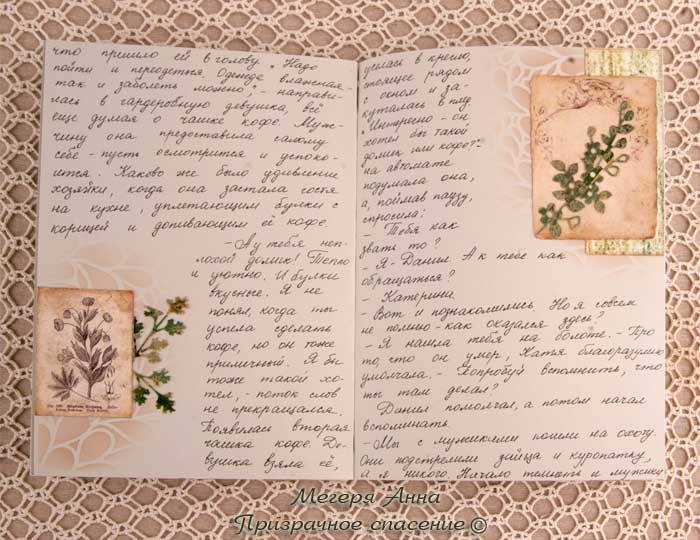 что пришло ей в голову. "Надо
пойти и переодеться. Одежда влажная -
так и заболеть можно", - направи-
лась в гардеробную девушка, всё
еще думая о чашке кофе. Муж-
чину она предоставила самому
себе - пусть осмотрится и успоко-
ится. Каково же было удивление
хозяйки, когда она застала гостя
на кухне, уплетающим булки с
корицей и допивающим её кофе.
- А у тебя неп-
лохой домик! Тепло
и уютно. И булки
вкусные. Я не
понял, когда ты
успела сделать
кофе, но он тоже
приличный. Я бы
тоже такой хо-
тел, - поток слов
не прекращался.
Появилась вторая
чашка кофе. Де-
вушка взяла её,
уселась в кресло,
стоящее рядом
с окном и за-
куталась в плед.
"Интересно - он
хотел бы такой
домик или кофе?" -
на автомате
подумала она,
а, поймав паузу,
спросила:
- Тебя как
звать то?
- Я - Данил. А к тебе как
обращаться?
- Катерина.
- Вот и познакомились. Но я совсем
не помню - как оказался здесь?
- Я нашла тебя на болоте. - Про
то, что он умер, Катя благоразумно
умолчала. - Попробуй вспомнить, что
ты там делал?
Данил помолчал, а потом начал
вспоминать.
- Мы с мужиками пошли на охоту.
Они подстрелили зайца и куропатку,
а я никого. Начало темнеть и мужики
Мегеря Анна
Призрачное спасение ©